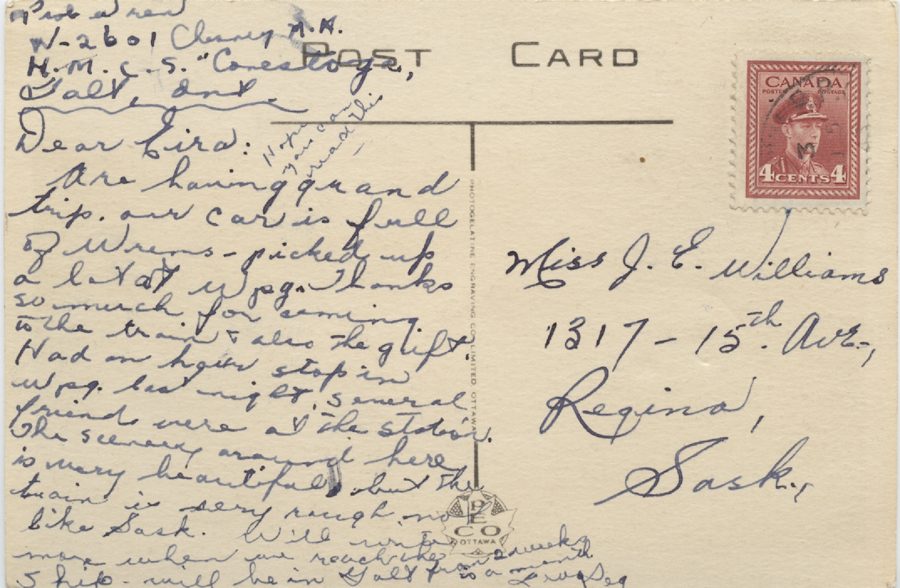 Prob. Wren
W-2601 Chesney M.H.
H.M.C.S. "Conestoga",
Galt, Ont.
Dear Eira:
Hope
you can
read this
Are having grand
trip. our car is full
of Wrens - picked up
a lot at Wpg. Thanks
so much for coming
to the train & also the gift.
Had an hour stop in
Wpg. last night, several
friends were at the station.
The scenery around here
is very beautiful, but the
train is very rough, not
like Sask. Will write
more when we reach the
Ship - will be in Galt
POST CARD
PHOTOGELATINE ENGRAVING CO. LIMITED. OTTAWA
PECO
OTTAWA
CANADA
POSTES POSTAGE
4 CENTS 4
Miss J. E. Williams
1317 - 15th Ave.,
Regina,
Sask.,